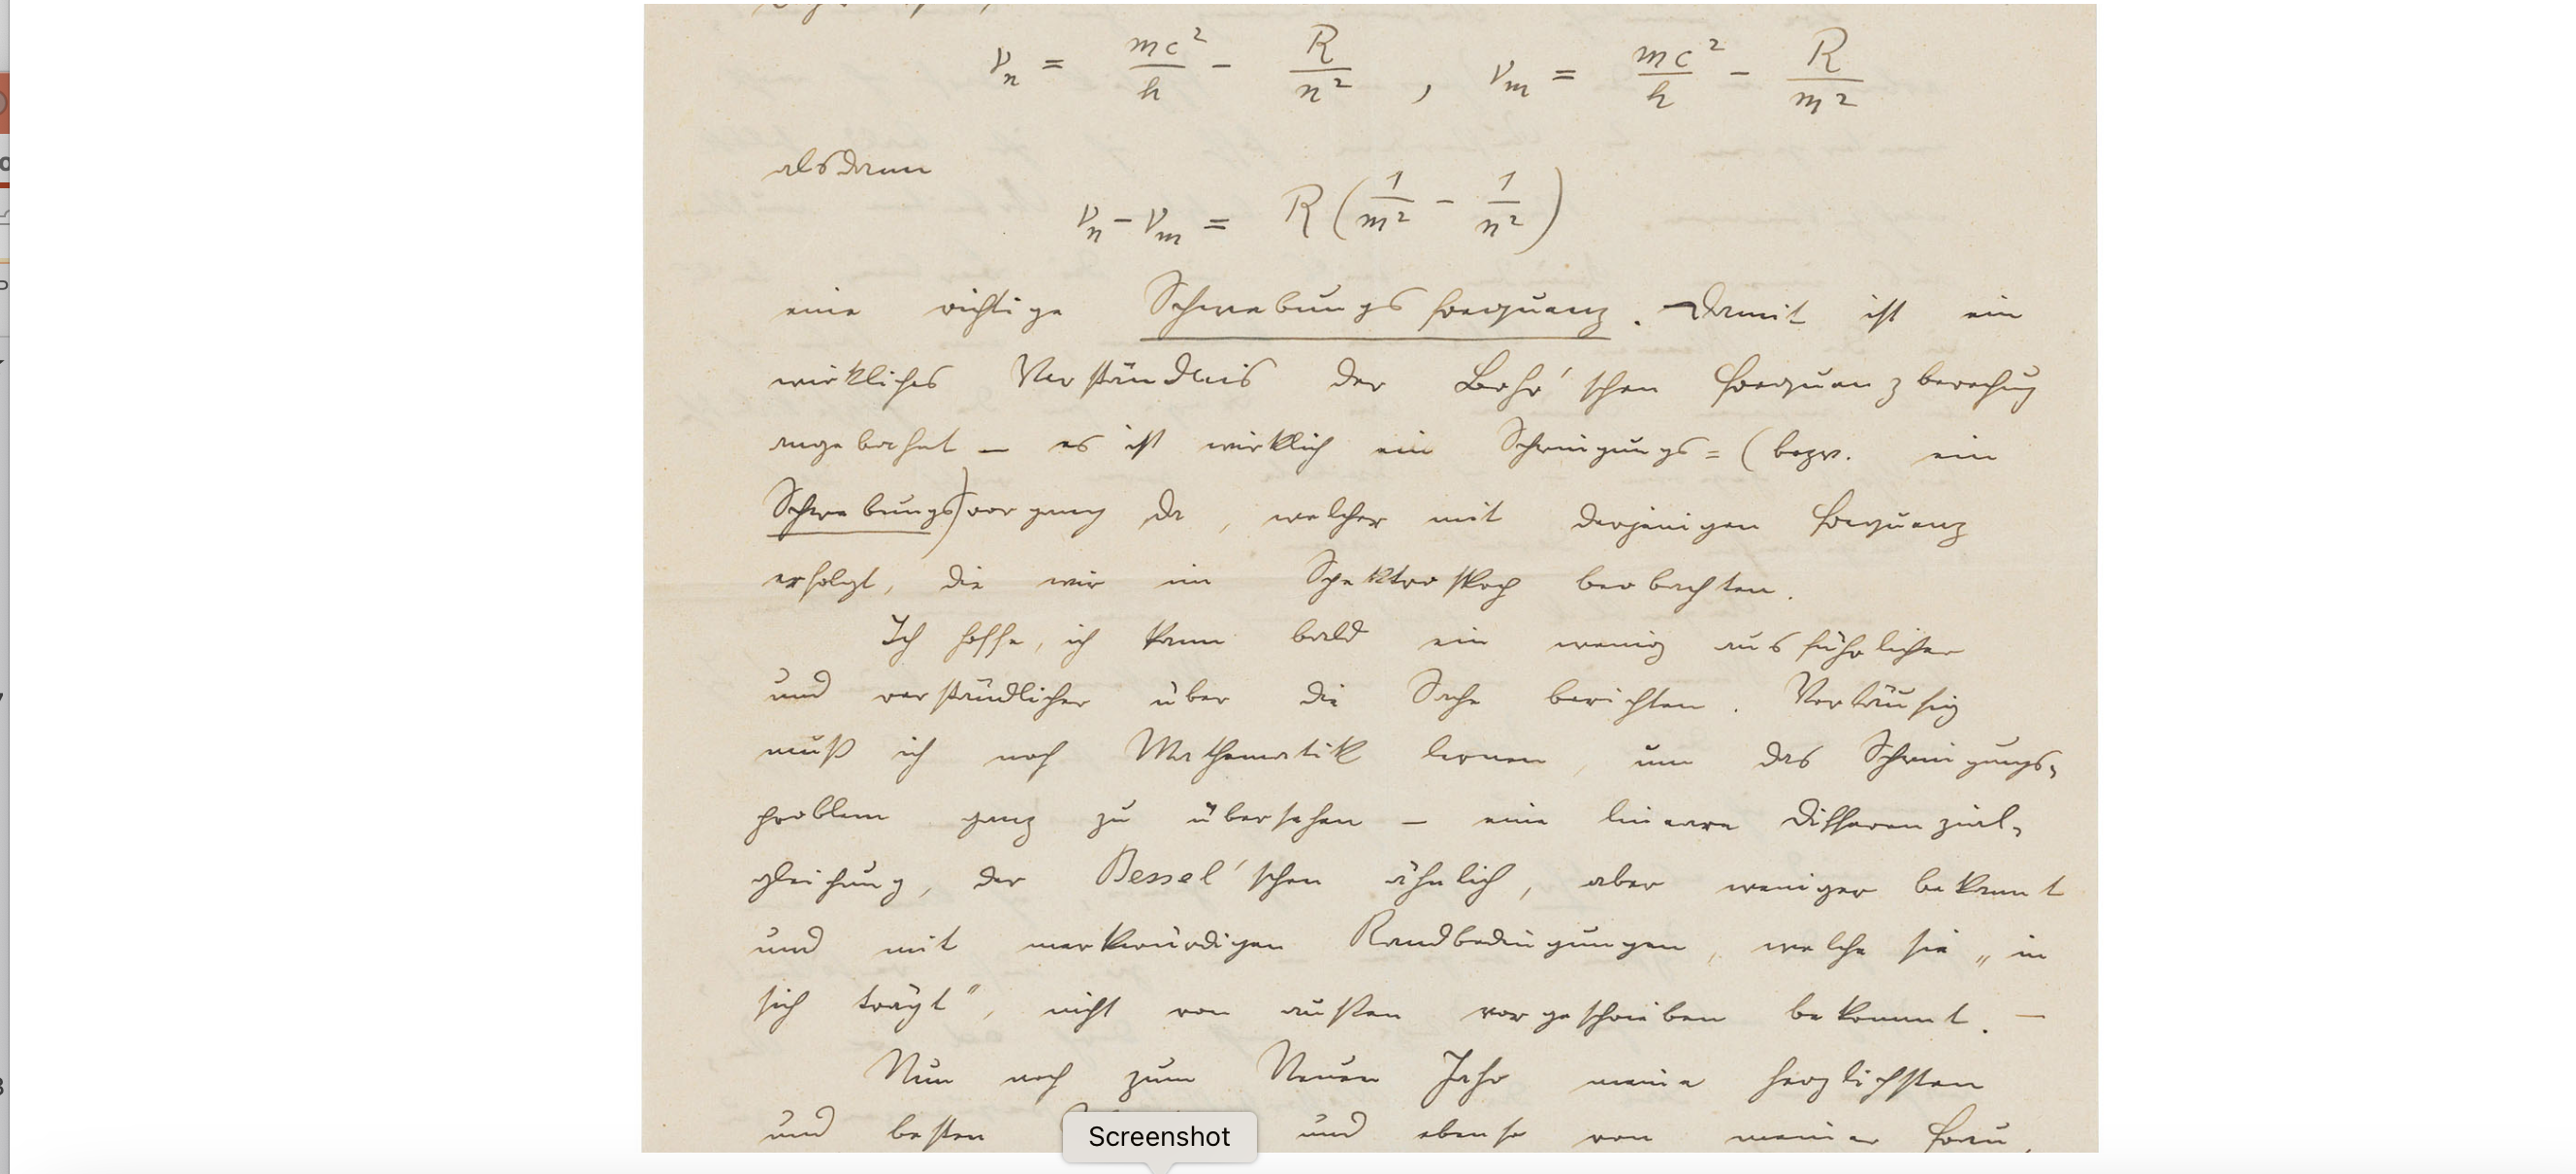 νₙ = mc²/h − R/n² , νₘ = mc²/h − R/m²
alsdann
νₙ − νₘ = R(1/m² − 1/n²)
eine richtige Schwebungsfrequenz. Damit ist ein
wirkliches Verständnis der Bohr'schen Frequenzberechng
angebahnt – es ist wirklich ein Schwingungs= (bezw. ein
Schwebungs)vorgang da, welcher mit derjenigen Frequenz
erfolgt, die wir im Spektroskop beobachten.
Ich hoffe, ich kann bald ein wenig ausführlicher
und verständlicher über die Sache berichten. Vorläufig
muß ich noch Mathematik lernen, um das Schwingungs-
problem ganz zu übersehen – eine lineare Differenzial-
gleichung, der Bessel'schen ähnlich, aber weniger bekannt
und mit merkwürdigen Randbedingungen, welche sie „in
sich trägt", nicht von außen vorgeschrieben bekommt. –
Nun noch zum Neuen Jahr meine herzlichsten
und besten und ebenso von meiner Frau,
Screenshot